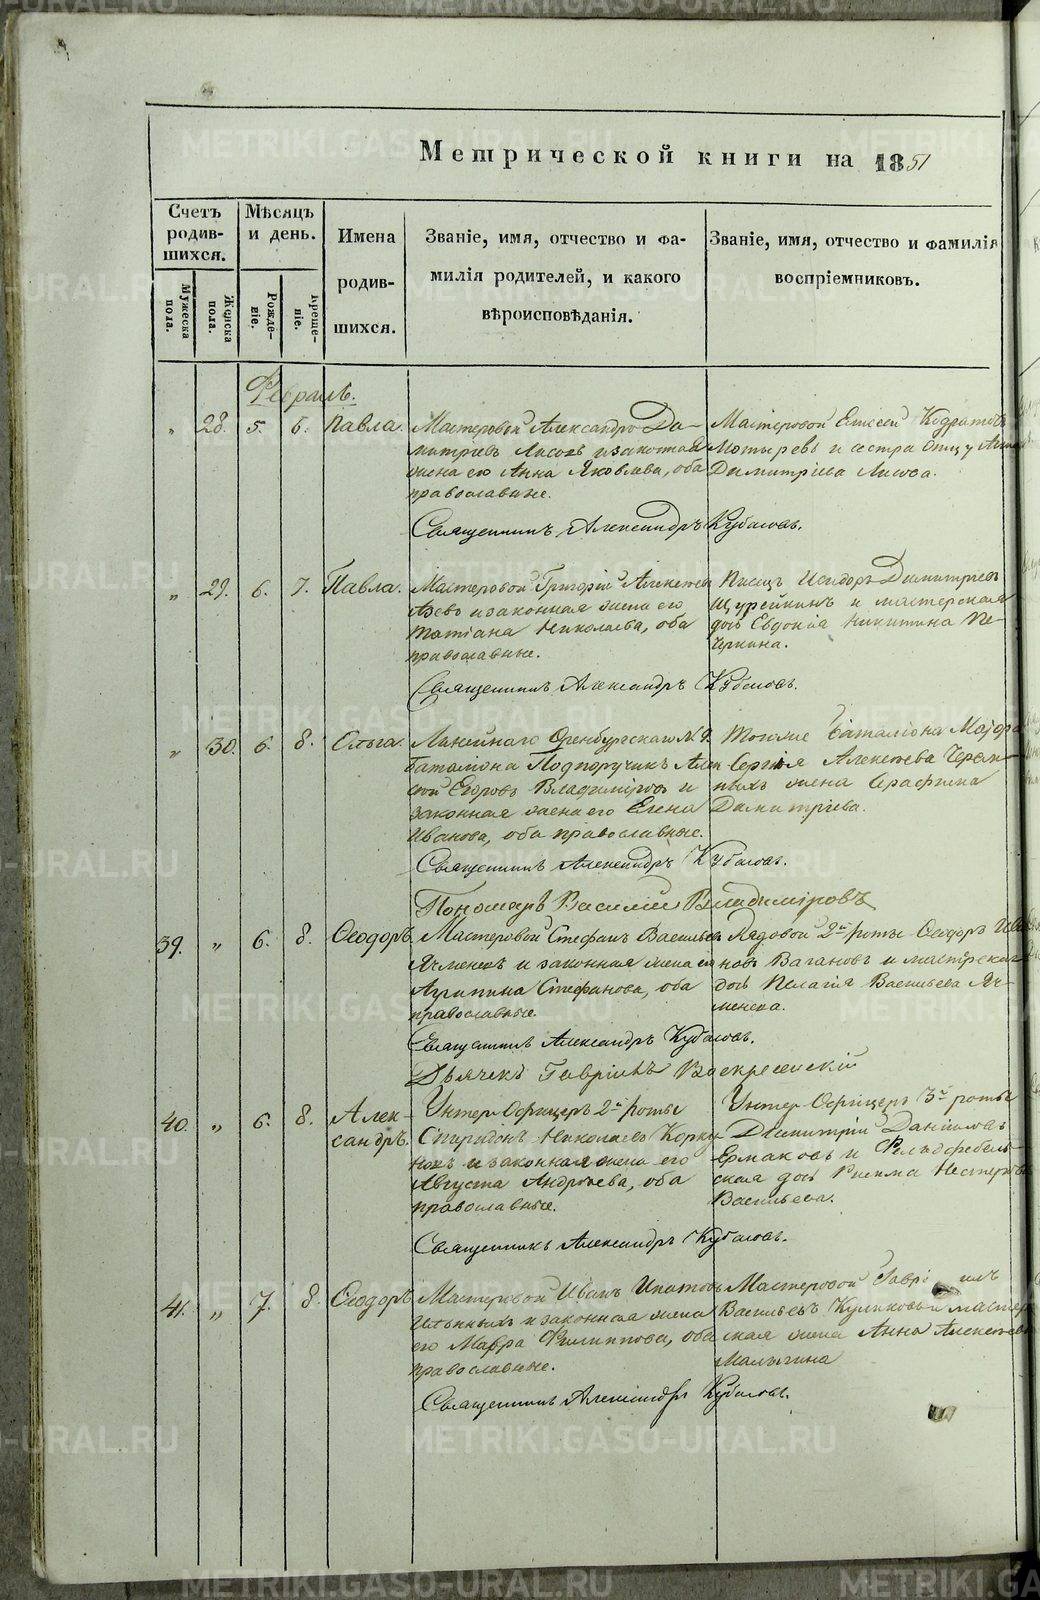 Метрической книги на 1851
Счетъ родившихся.
Мужеска пола.
Женска пола.
Мѣсяцъ и день.
Рожденіе.
Крещеніе.
Имена родившихся.
Званіе, имя, отчество и фамилія родителей, и какого вѣроисповѣданія.
Званіе, имя, отчество и фамилія воспріемниковъ.
Февраль.
„ 28. 5. 6. Павла.
Мастеровой Александръ Ди-
митріевъ Лисовъ и законная
жена его Анна Яковлева, оба
православные.
Мастеровой Елисей
и сестра отцу
Димитріева Лисова.
Священникъ Александръ Кубасовъ.
„ 29. 6. 7. Павла.
Мастеровой Григорій Алексѣевъ
и законная жена его
Татіана Николаева, оба
православные.
Писецъ Исидоръ Димитріевъ
и мастерская
дочь Евдокія Никитина Пе-
черкина.
Священникъ Александръ Кубасовъ.
„ 30. 6. 8. Ольга.
Линейнаго Оренбургскаго №
баталіона Подпоручикъ Алек-
сѣй Егоровъ Владиміровъ и
законная жена его Елена
Иванова, оба православные.
Тогоже баталіона Маіора
Сергія Алексѣева
жена Серафима
Димитріева.
Священникъ Александръ Кубасовъ.
Пономарь Василій Владиміровъ
39. „ 6. 8. Ѳеодоръ.
Мастеровой Стефанъ Васильевъ
Ячменевъ и законная жена его
Агрипина Стефанова, оба
православные.
Рядовой 2й роты Ѳеодоръ Ива-
новъ Вагановъ и мастерская
дочь Пелагія Васильева Яч-
менева.
Священникъ Александръ Кубасовъ.
Дьячекъ Гавріилъ Воскресенскій
40. „ 6. 8. Алек-
сандръ.
Унтер Офицеръ 2й роты
Спиридонъ Николаевъ
и законная жена его
Августа Андреева, оба
православные.
Унтер Офицеръ 3й роты
Димитрій Даниловъ
Ермаковъ и Фельдфебель-
ская дочь
Васильева.
Священникъ Александръ Кубасовъ.
41. „ 7. 8. Ѳеодоръ.
Мастеровой Иванъ Ипатовъ
Ильиныхъ и законная жена
его Мавра Филиппова, оба
православные.
Мастеровой Гавріилъ
Васильевъ Куликовъ и мастер-
ская жена Анна Алексѣева
Малыгина
Священникъ Александръ Кубасовъ.
METRIKI.GASO-URAL.RU